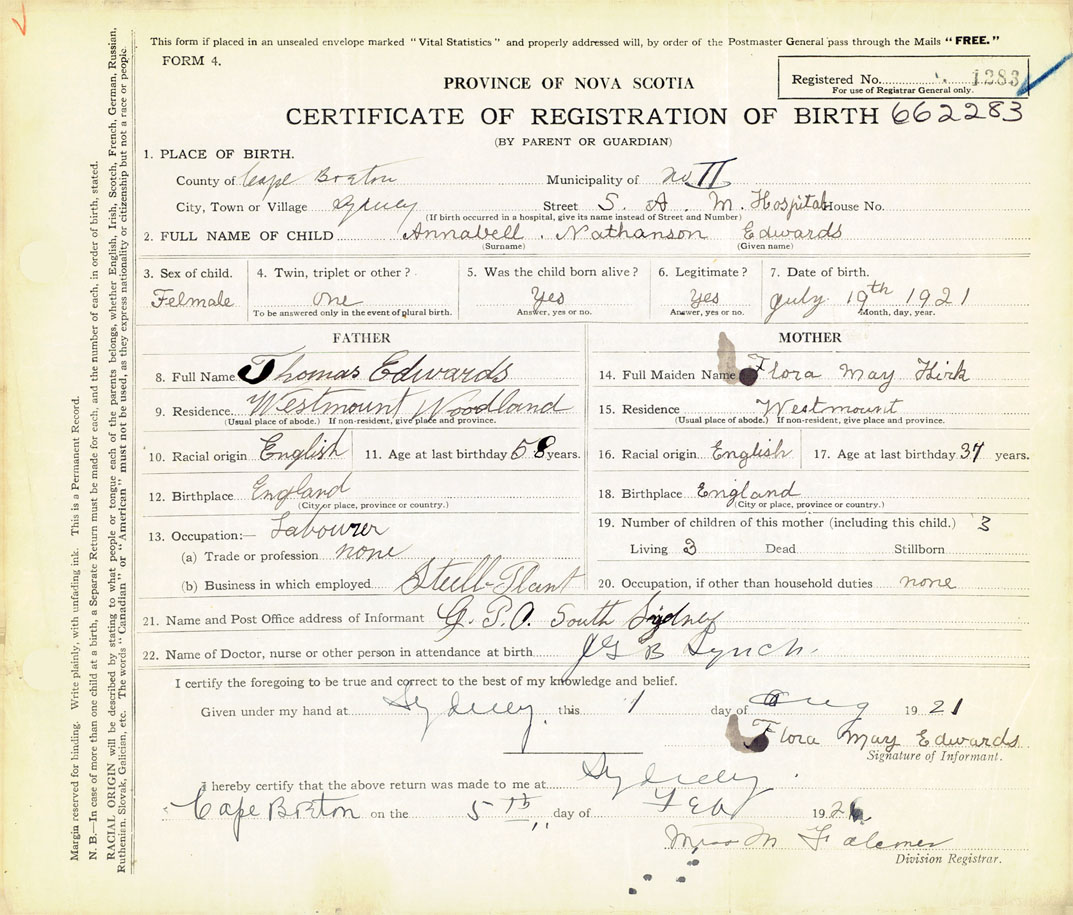 This form if placed in an unsealed envelope marked "Vital Statistics" and properly addressed will, by order of the Postmaster General pass through the Mails "FREE."
FORM 4.
Registered No. 1283
For use of Registrar General only.
PROVINCE OF NOVA SCOTIA
CERTIFICATE OF REGISTRATION OF BIRTH 662283
(BY PARENT OR GUARDIAN)
1. PLACE OF BIRTH.
County of Cape Breton Municipality of No II
City, Town or Village Sydney Street S. A. M. Hospital House No.
(If birth occurred in a hospital, give its name instead of Street and Number)
2. FULL NAME OF CHILD Annabell Nathanson Edwards
(Surname) (Given name)
3. Sex of child. 4. Twin, triplet or other? 5. Was the child born alive? 6. Legitimate? 7. Date of birth.
Felmale one Yes Yes July 19th 1921
To be answered only in the event of plural birth. Answer, yes or no. Answer, yes or no. Month, day, year.
FATHER MOTHER
8. Full Name Thomas Edwards 14. Full Maiden Name Flora May Kirk
9. Residence Westmount Woodland 15. Residence Westmount
(Usual place of abode.) If non-resident, give place and province. (Usual place of abode.) If non-resident, give place and province.
10. Racial origin English 11. Age at last birthday 58 years. 16. Racial origin English 17. Age at last birthday 37 years.
12. Birthplace England 18. Birthplace England
(City or place, province or country.) (City or place, province or country.)
13. Occupation:— Labourer 19. Number of children of this mother (including this child.) 3
(a) Trade or profession none Living 3 Dead Stillborn
(b) Business in which employed Steell Plant 20. Occupation, if other than household duties none
21. Name and Post Office address of Informant G. P. O. South Sydney
22. Name of Doctor, nurse or other person in attendance at birth JGB Lynch.
I certify the foregoing to be true and correct to the best of my knowledge and belief.
Given under my hand at Sydney, this 1 day of Aug 1921
Flora May Edwards
Signature of Informant.
I hereby certify that the above return was made to me at Sydney.
Cape Breton on the 5th day of 192
Division Registrar.
Margin reserved for binding. Write plainly, with unfading ink. This is a Permanent Record.
N. B.—In case of more than one child at a birth, a Separate Return must be made for each, and the number of each, in order of birth, stated.
RACIAL ORIGIN will be described by stating to what people or tongue each of the parents belongs, whether English, Irish, Scotch, French, German, Russian,
Ruthenian, Slovak, Galician, etc. The words "Canadian" or "American" must not be used, as they express nationality or citizenship but not a race or people.